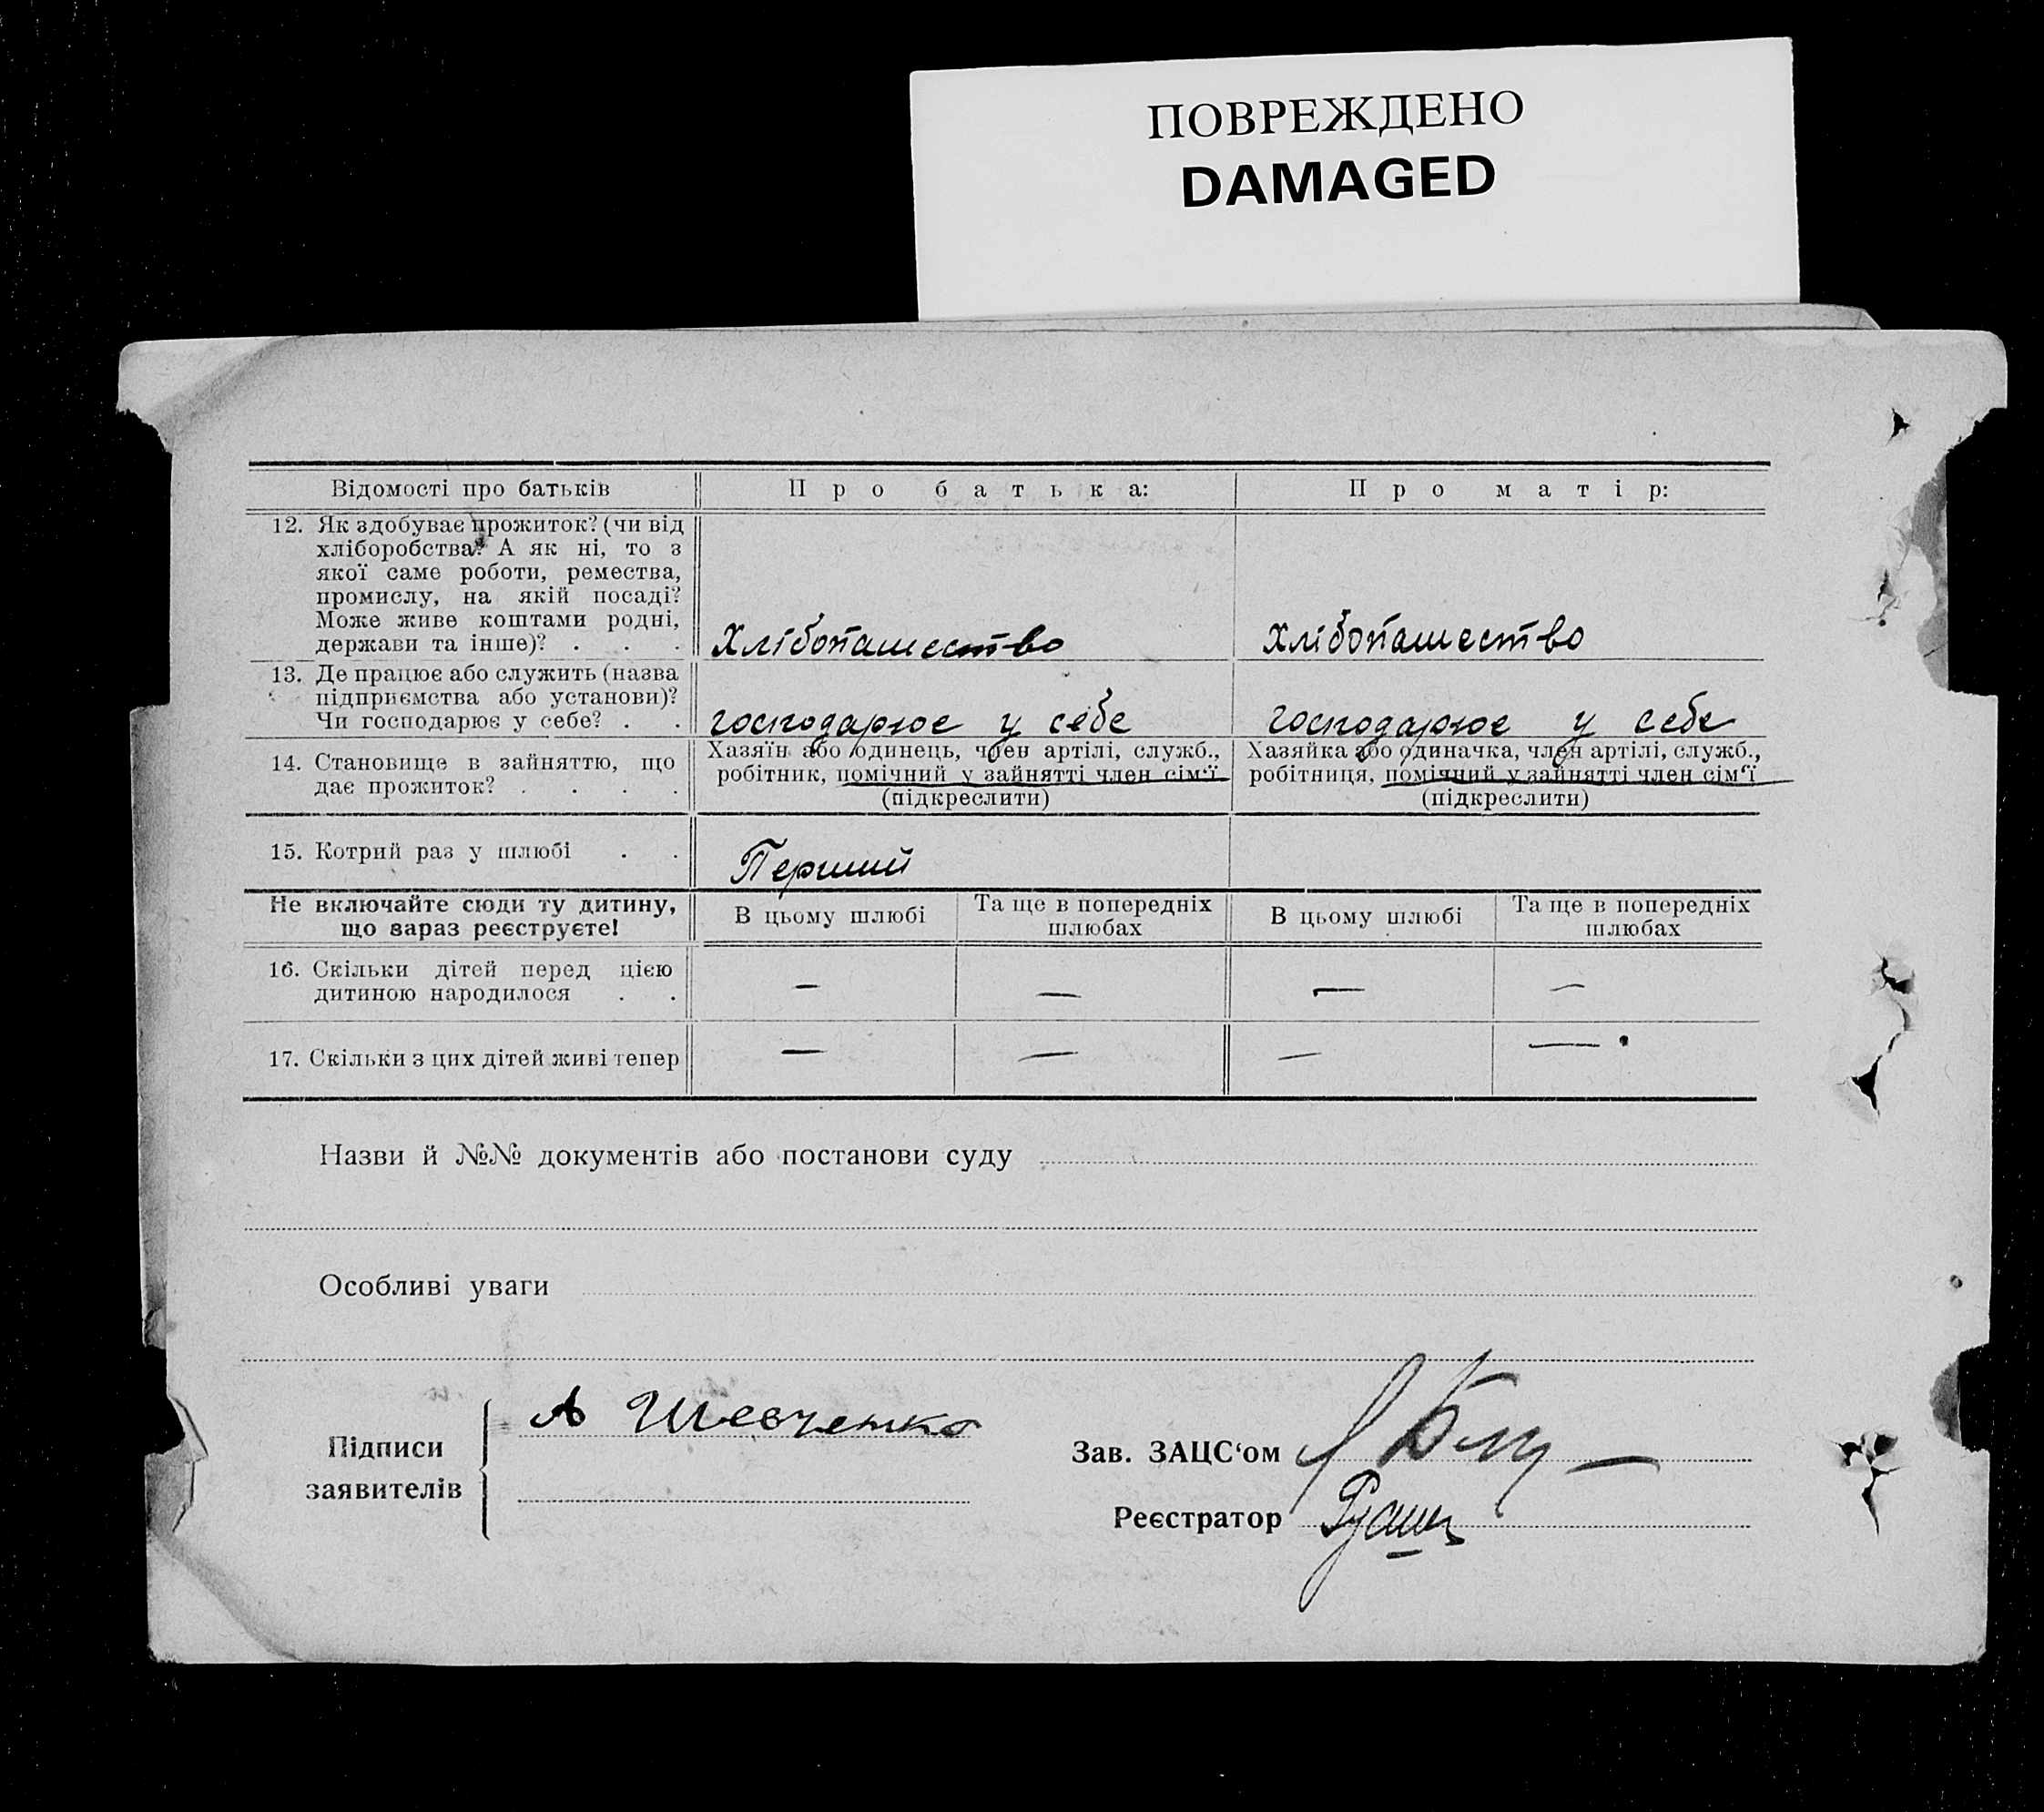 ПОВРЕЖДЕНО
DAMAGED
Відомості про батьків
Про батька:
Про матір:
12. Як здобуває прожиток? (чи від
хліборобства? А як ні, то з
якої саме роботи, ремества,
промислу, на якій посаді?
Може живе коштами родні,
держави та інше)? . . .
Хлібопашество
Хлібопашество
13. Де працює або служить (назва
підприємства або установи)?
Чи господарює у себе? . .
господарює у себе
господарює у себе
14. Становище в зайняттю, що
дає прожиток? . . . .
Хазяїн або одинець, член артілі, служб.,
робітник, помічний у зайнятті член сім‘ї
(підкреслити)
Хазяйка або одиначка, член артілі, служб.,
робітниця, помічний у зайнятті член сім‘ї
(підкреслити)
15. Котрий раз у шлюбі . .
Перший
Не включайте сюди ту дитину,
що зараз реєструєте!
В цьому шлюбі
Та ще в попередніх
шлюбах
В цьому шлюбі
Та ще в попередніх
шлюбах
16. Скільки дітей перед цією
дитиною народилося . .
— — — —
17. Скільки з цих дітей живі тепер
— — — —
Назви й №№ документів або постанови суду
Особливі уваги
Підписи
заявителів
А Шевченко
Зав. ЗАЦС‘ом
Реєстратор